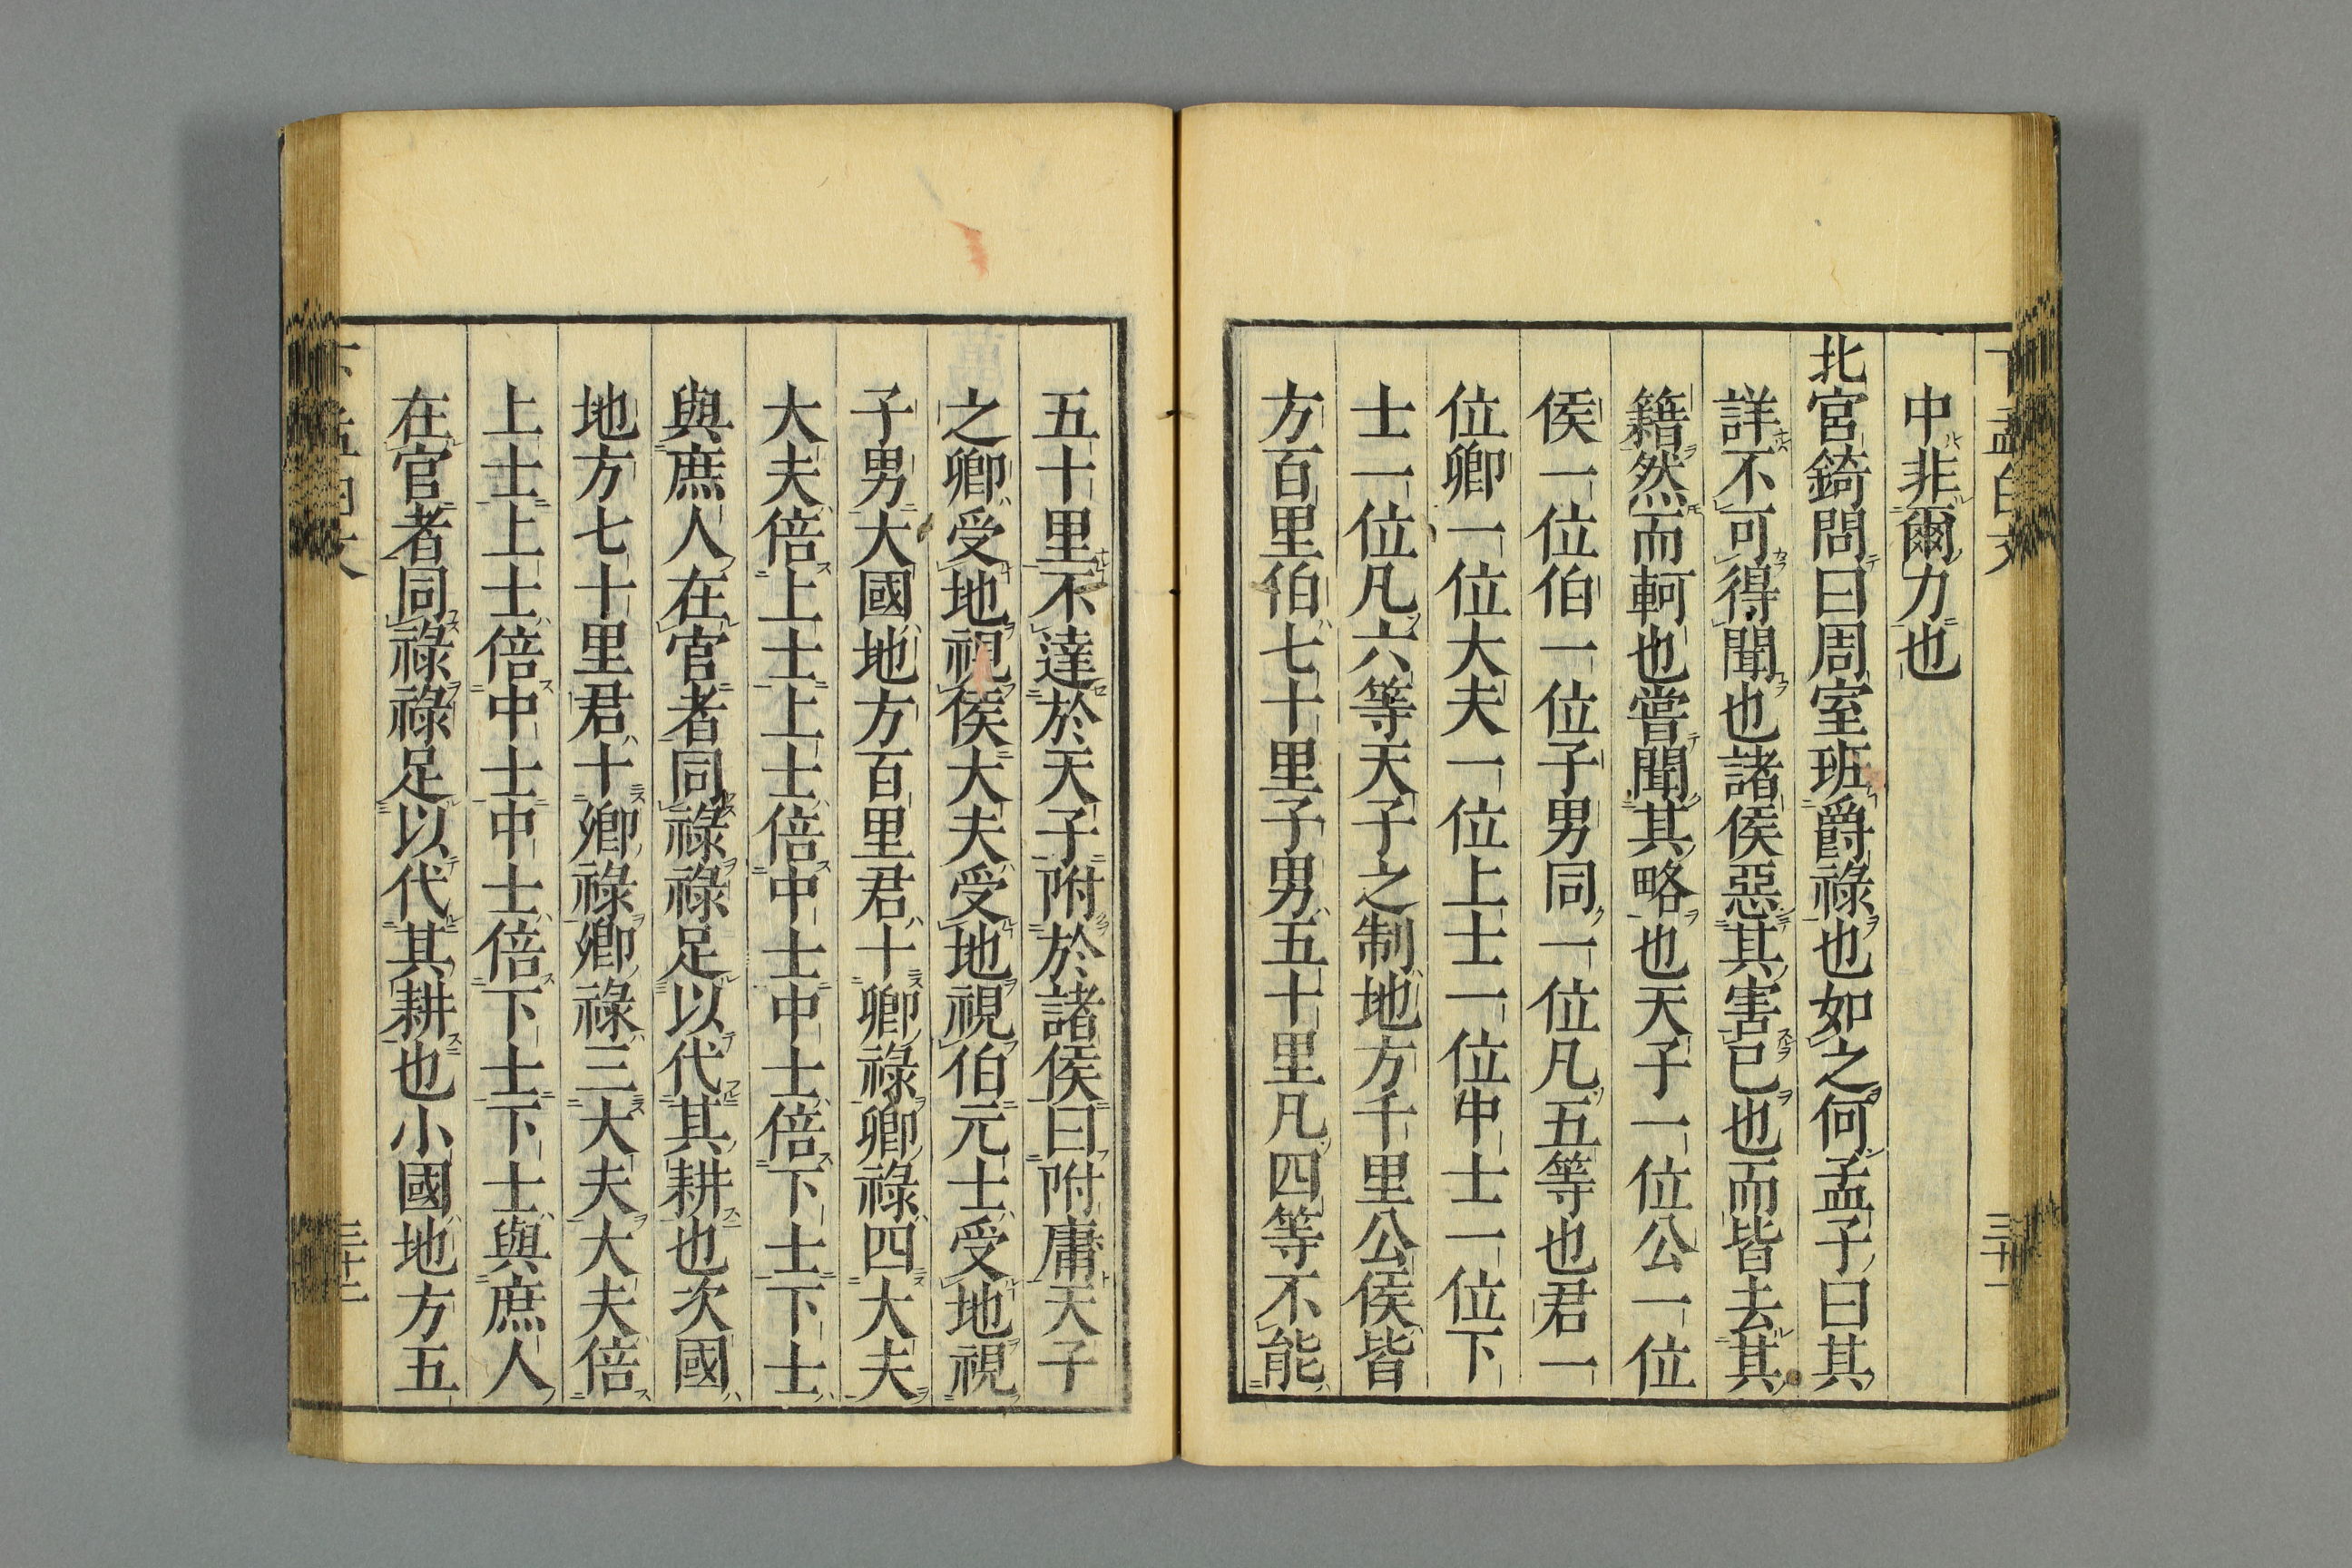 中非爾力也
北宮錡問曰周室班爵祿也如之何孟子曰其
詳不可得聞也諸侯惡其害已也而皆去其
籍然而軻也嘗聞其略也天子一位公一位
侯一位伯一位子男同一位凡五等也君一
位卿一位大夫一位上士一位中士一位下
士一位凡六等天子之制地方千里公侯皆
方百里伯七十里子男五十里凡四等不能
五十里不達於天子附於諸侯曰附庸天子
之卿受地視侯大夫受地視伯元士受地視
子男大國地方百里君十卿祿卿祿四大夫
大夫倍上士上士倍中士中士倍下士下士
與庶人在官者同祿祿足以代其耕也次國
地方七十里君十卿祿卿祿三大夫大夫倍
上士上士倍中士中士倍下士下士與庶人
在官者同祿祿足以代其耕也小國地方五
三十二